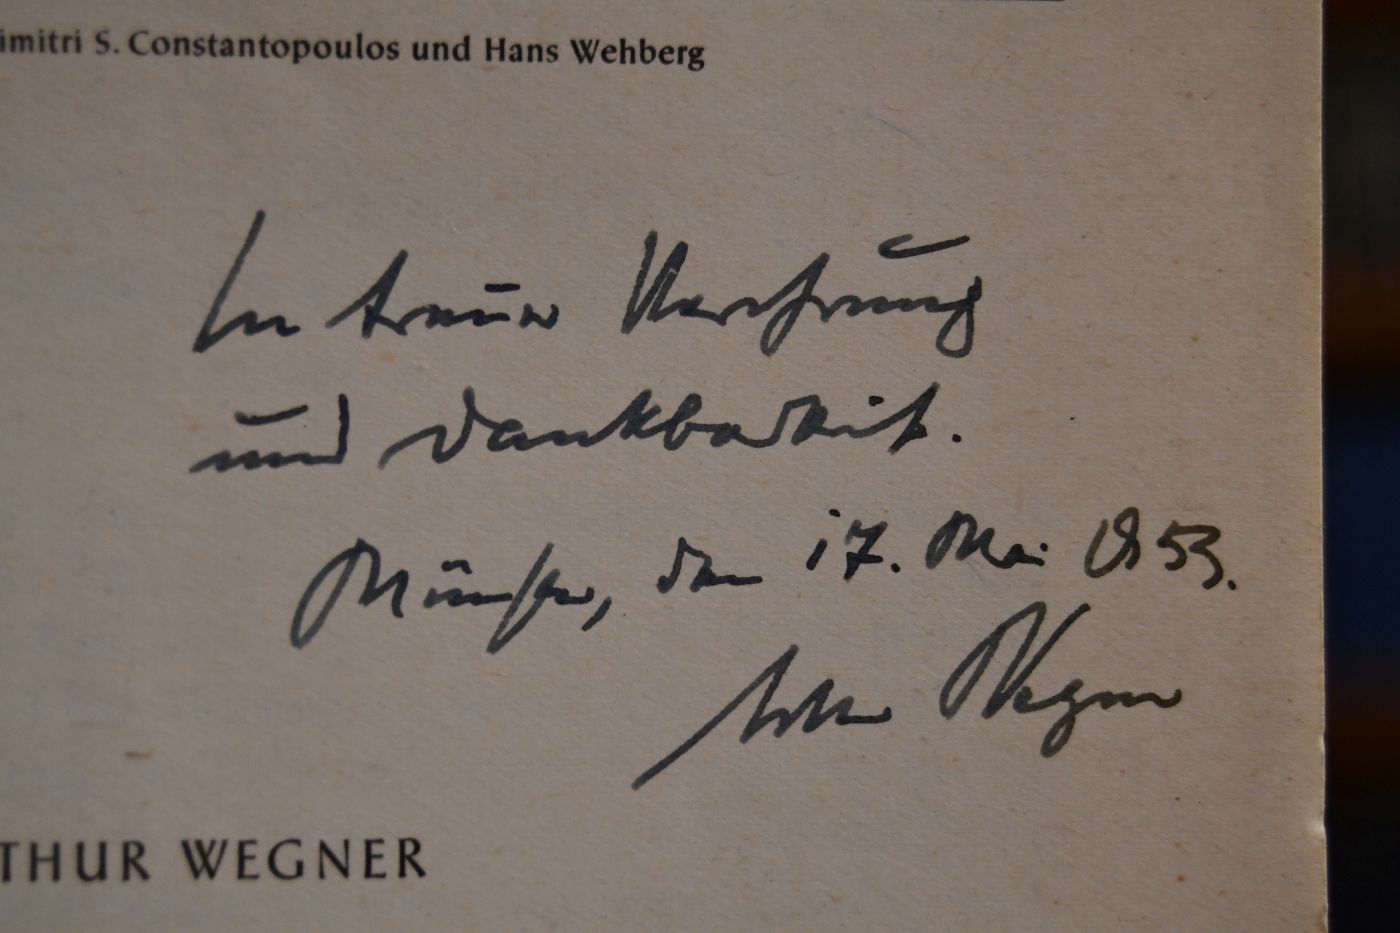 imitri S. Constantopoulos und Hans Wehberg
In treuer Verehrung
und Dankbarkeit.
Münster, den 17. Mai 1953.
Arthur Wegner
THUR WEGNER